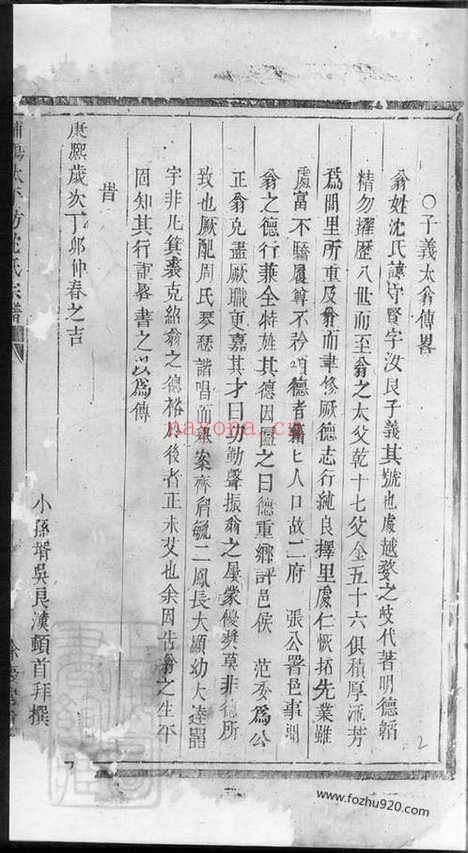 ○子義太翁傳畧
翁姓沈氏諱守賢字汝良子義其號也處越婺之歧代著明德韜
精勿耀歷八世而至翁之太父乾十七父金五十六俱積厚流芳
為閭里所重及翁而聿修厥德志行純良擇里處仁恢拓先業雖
處富不驕履尊不矜頌德者籍匕人口故二府　張公署邑事聞
翁之德行兼全特旌其德因匾之曰德重鄉評邑侯　范委為公
正翁克盡厥職更嘉其才曰功勤聲振翁之屢蒙優獎莫非德所
致也厥配周氏琴瑟諧唱而舉案齊眉毓二鳳長大顯幼大達器
宇非凡箕裘克紹翁之德裕於後者正未艾也余因告翁之生平
固知其行誼畧書之以為傳
旹
康熙歲次丁卯仲春之吉
小孫壻吳良漢頓首拜撰
沈氏宗譜
2
nayona.cn
www.fozhu920.com